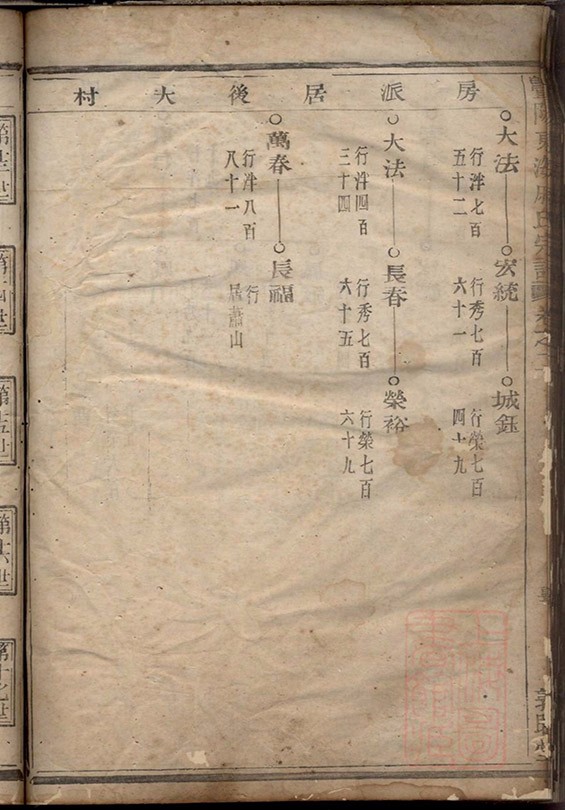 房派居後大村
大法
行泮七百
五十二
宏統
行秀七百
六十一
城鈺
行榮七百
四十九
大法
行泮四百
三十四
長春
行秀七百
六十五
榮裕
行榮七百
六十九
萬春
行泮八百
八十一
長福
行
居蕭山
東海
氏宗譜
第十五世
第十六世
第十七世